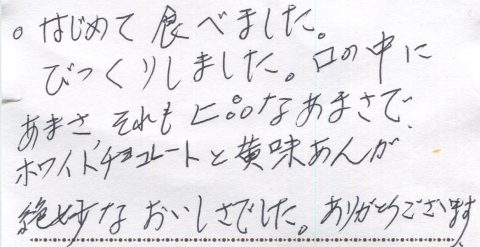 。はじめて食べました。
びっくりしました。口の中に
あまさ、それも上品なあまさで、
ホワイトチョコレートと黄味あんが
絶妙なおいしさでした。ありがとうございます